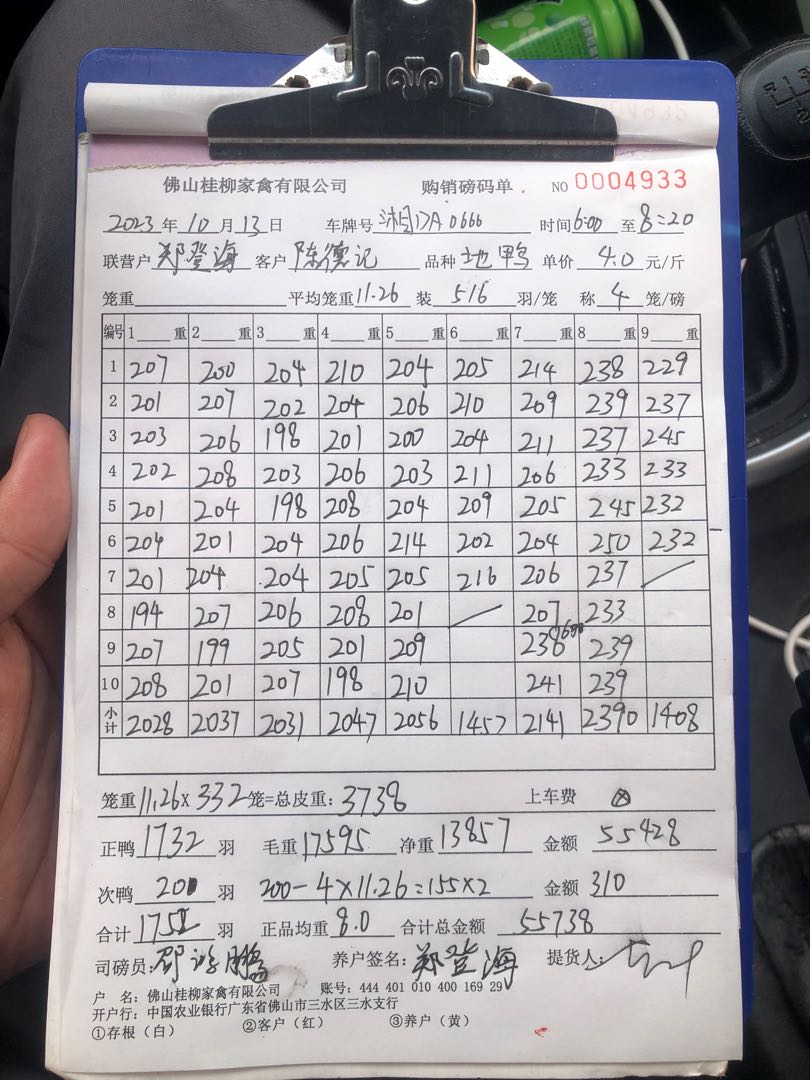 佛山桂柳家禽有限公司 购销磅码单 NO 0004933
2023年10月13日 车牌号 湘DA0666 时间6:00至8:20
联营户 郑登海 客户 陈德记 品种 地鸭 单价 4.0 元/斤
笼重 平均笼重11.26 装 5/6 羽/笼 称 4 笼/磅
编号 1 重 2 重 3 重 4 重 5 重 6 重 7 重 8 重 9 重
1 207 200 204 210 204 205 214 238 229
2 201 207 202 204 206 210 209 239 237
3 203 206 198 201 200 204 211 237 245
4 202 208 203 206 203 211 206 233 233
5 201 204 198 208 204 209 205 245 232
6 204 201 204 206 214 202 204 250 232
7 201 204 204 205 205 216 206 237
8 194 207 206 208 201 207 233
9 207 199 205 201 209 238 239
10 208 201 207 198 210 241 239
小计 2028 2037 2031 2047 2056 1457 2141 2390 1408
笼重11.26×332笼=总皮重:3738 上车费
正鸭1732羽 毛重17595 净重13857 金额 55428
次鸭 20羽 200-4×11.26=155×2 金额310
合计1752羽 正品均重8.0 合计总金额 55738
司磅员: 养户签名:郑登海 提货人:
户 名:佛山桂柳家禽有限公司 账号:444 401 010 400 169 29
开户行:中国农业银行广东省佛山市三水区三水支行
①存根(白) ②客户(红) ③养户(黄)